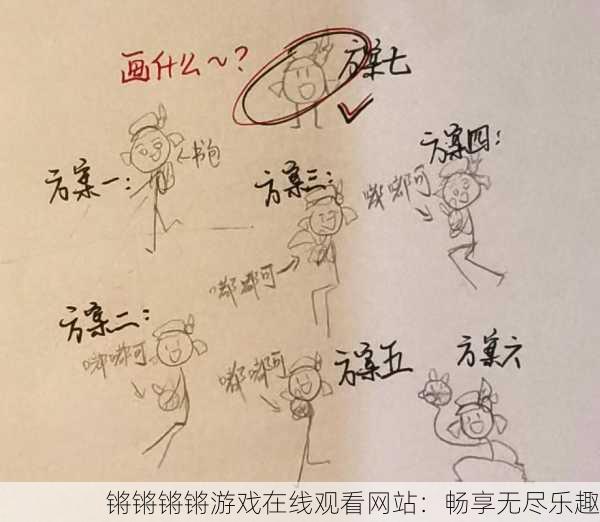 画什么~?
方案七
方案一:
书包
方案三:
嘟嘟可
方案四:
嘟嘟可
方案二:
嘟嘟可
方案五
嘟嘟可
方案六
锵锵锵锵游戏在线观看网站：畅享无尽乐趣